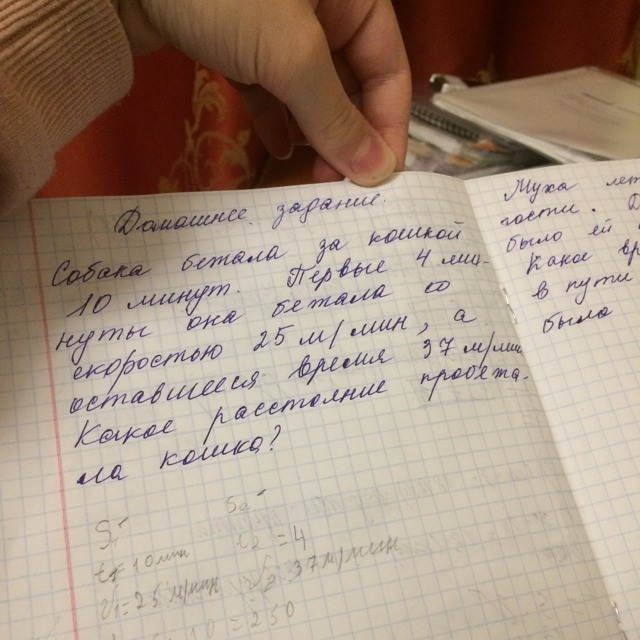 Домашнее задание.
Собака бежала за кошкой
10 минут. Первые 4 ми-
нуты она бежала со
скоростью 25 м/мин, а
оставшееся время 37 м/мин
Какое расстояние пробежа-
ла кошка?
S₁-
t₁ 10 мин
v₁=25 м/мин
10 = 250
S₂-
t₂ = 4
v₂ 37 м/мин
Муха лет
гости.
было ей
Какое вр
в пути
было